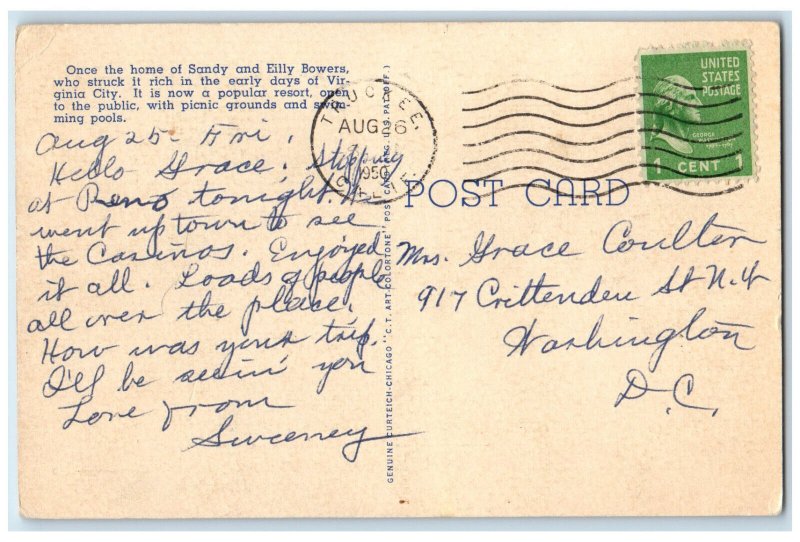 Once the home of Sandy and Eilly Bowers,
who struck it rich in the early days of Vir-
ginia City. It is now a popular resort, open
to the public, with picnic grounds and swim-
ming pools.
Aug 25 - Fri.
Hello Grace; Stopping
at Reno tonight.
went uptown to see
the Casinos. Enjoyed
it all. Loads of people
all over the place.
How was your trip.
I'll be seein' you
Love from
Sweeney
TRUCKEE.
AUG 26
1950
CALIF.
GENUINE CURTEICH-CHICAGO "C.T. ART-COLORTONE" POST CARD (REG. U.S. PAT. OFF.)
UNITED
STATES
POSTAGE
GEORGE
1 CENT 1
POST CARD
Mrs. Grace Coulter
917 Crittenden St N.W
Washington
D.C.